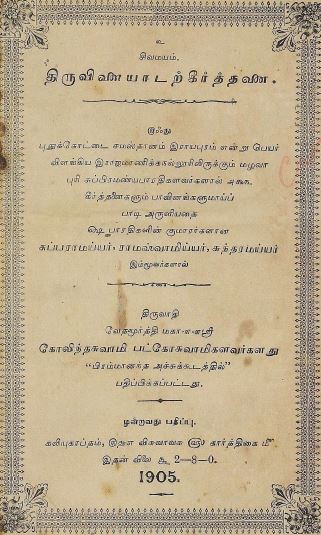 உ
சிவமயம்.
திருவிளையாடற்கீர்த்தனை.
இஃது
புதுக்கோட்டை சமஸ்தானம் இராயபுரம் என்று பெயர்
விளங்கிய இராஜமாணிக்கநல்லூரிலிருக்கும் மழவா
புரி சுப்பிரமண்யபாரதிகளவர்களால் அநேக
கீர்த்தனைகளும் பாவினங்களுமாய்ப்
பாடி அருளியதை
ஷெ பாரதிகளின் குமாரர்களான
சுப்பராமய்யர், ராமஸ்வாமிய்யர், சுந்தரமய்யர்
இம்மூவர்களால்
திருவாதி
வேதமூர்த்தி மகா-ள-ள-ஸ்ரீ
கோவிந்தசுவாமி பட்கோசுவாமிகளவர்களது
"பிரம்மானந்த அச்சுக்கூடத்தில்"
பதிப்பிக்கப்பட்டது.
மூன்றாவது பதிப்பு.
கலியுகாப்தம், விசுவாவசு ௵ கார்த்திகை ௴
இதன் விலை ரூ 2—8—0.
1905.